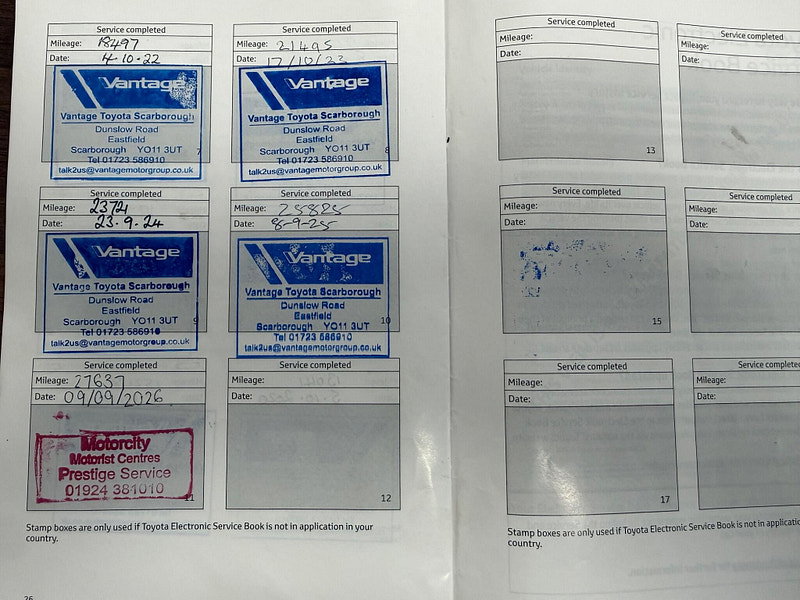 Service completed
Mileage: 18497
Date: 4.10.22
Vantage
Vantage Toyota Scarborough
Dunslow Road
Eastfield
Scarborough YO11 3UT
Tel 01723 586910
talk2us@vantagemotorgroup.co.uk
7
Service completed
Mileage: 21495
Date: 17/10/23
Vantage
Vantage Toyota Scarborough
Dunslow Road
Eastfield
Scarborough YO11 3UT
Tel 01723 586910
talk2us@vantagemotorgroup.co.uk
8
Service completed
Mileage:
Date: 23.9.24
Vantage
Vantage Toyota Scarborough
Dunslow Road
Eastfield
Scarborough YO11 3UT
Tel 01723 586910
talk2us@vantagemotorgroup.co.uk
9
Service completed
Mileage: 25825
Date: 8-9-25
Vantage
Vantage Toyota Scarborough
Dunslow Road
Eastfield
Scarborough YO11 3UT
Tel 01723 586910
talk2us@vantagemotorgroup.co.uk
10
Service completed
Mileage: 27637
Date: 09/09/2026
Motorcity
Motorist Centres
Prestige Service
01924 381010
11
Service completed
Mileage:
Date:
12
Stamp boxes are only used if Toyota Electronic Service Book is not in application in your
country.
26
Service completed
Mileage:
Date:
13
Service completed
Mileage:
Date:
Service completed
Mileage:
Date:
15
Service completed
Mileage:
Date:
Service completed
Mileage:
Date:
17
Service completed
Mileage:
Date:
Stamp boxes are only used if Toyota Electronic Service Book is not in
country.